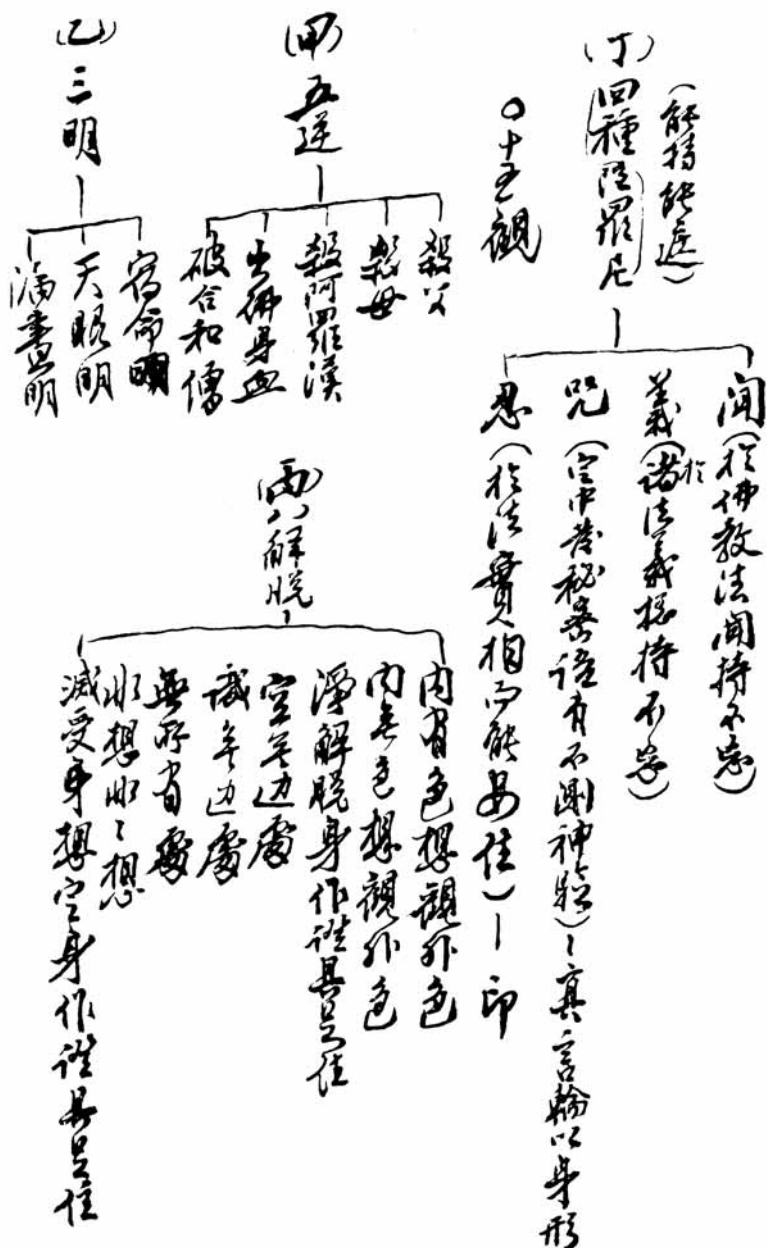 (能持能遮)
(丁)四種陀羅尼
聞(於佛教法聞持不忘)
義(於諸法義揔持不忘)
咒(定中發秘密語有不測神驗)—真言輪以身形
忍(於法實相而能安住)—印
○十五觀
(甲)五逆
殺父
殺母
殺阿羅漢
出佛身血
破合和僧
(乙)三明
宿命明
天眼明
漏盡明
(丙)八解脫
內有色想觀外色
內無色想觀外色
淨解脫身作證具足住
空無边處
識無边處
無所有處
非想非〻想
滅受身想定身作證具足住